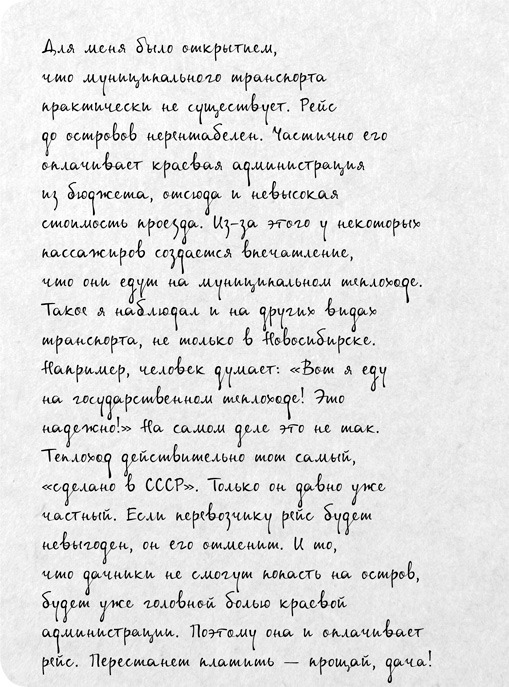 Для меня было открытием,
что муниципального транспорта
практически не существует. Рейс
до островов нерентабелен. Частично его
оплачивает краевая администрация
из бюджета, отсюда и невысокая
стоимость проезда. Из-за этого у некоторых
пассажиров создается впечатление,
что они едут на муниципальном теплоходе.
Такое я наблюдал и на других видах
транспорта, не только в Новосибирске.
Например, человек думает: «Вот я еду
на государственном теплоходе! Это
надежно!» На самом деле это не так.
Теплоход действительно тот самый,
«сделано в СССР». Только он давно уже
частный. Если перевозчику рейс будет
невыгоден, он его отменит. И то,
что дачники не смогут попасть на остров,
будет уже головной болью краевой
администрации. Поэтому она и оплачивает
рейс. Перестанет платить — прощай, дача!